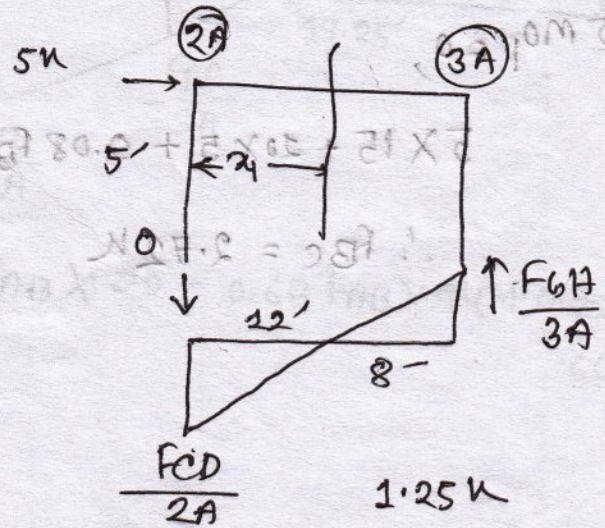 2A
3A
5K
5'
x₁
0
12'
8'
FGH
3A
FCD
2A
1.25K